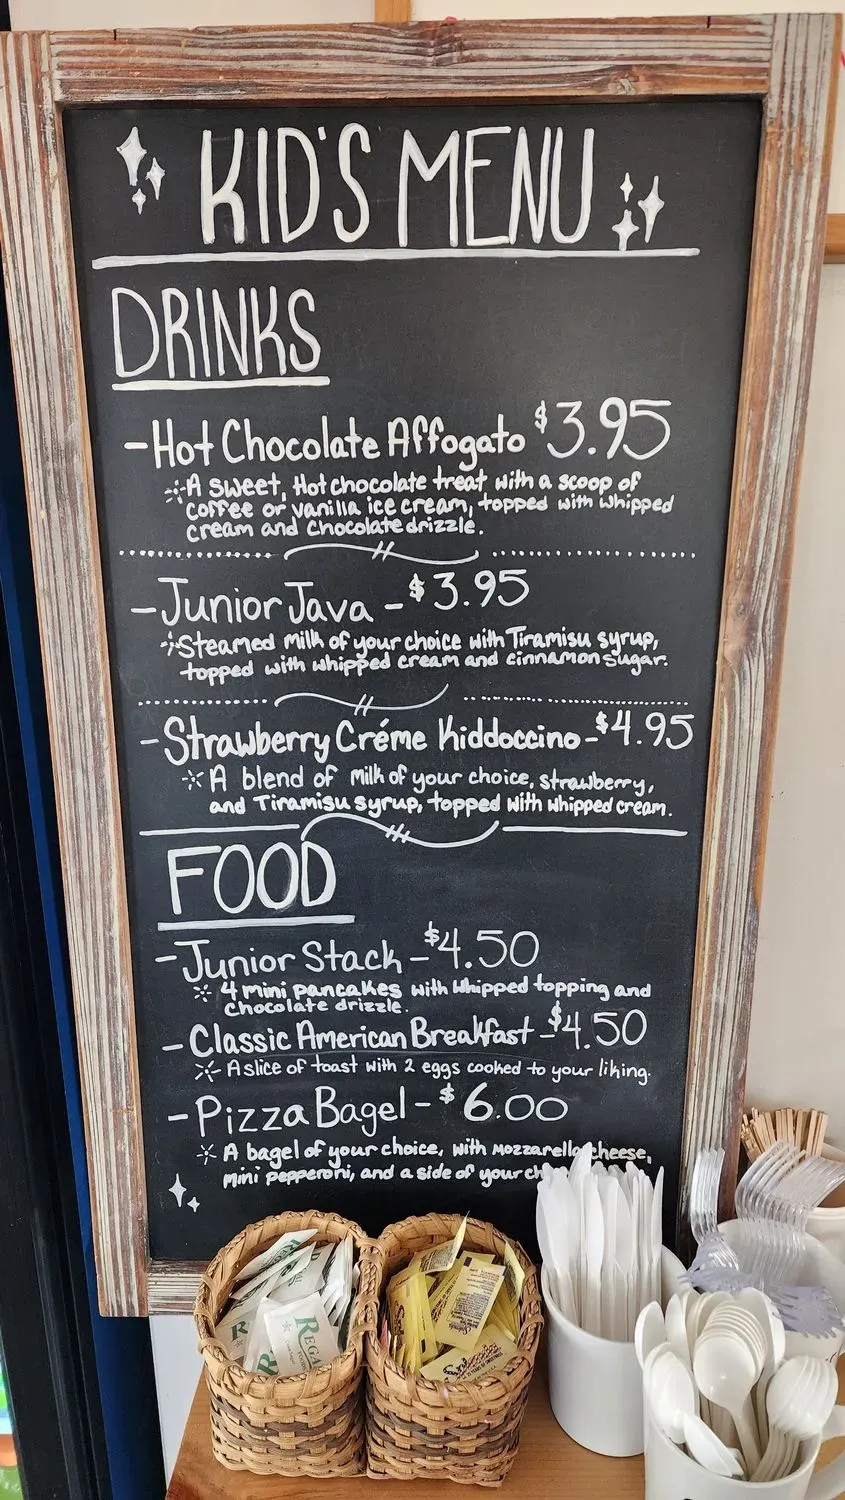 KID'S MENU
DRINKS
-Hot Chocolate Affogato $3.95
A sweet, Hot chocolate treat with a scoop of
coffee or vanilla ice cream, topped with whipped
cream and Chocolate drizzle.
-Junior Java -$3.95
Steamed milk of your choice with Tiramisu syrup,
topped with whipped cream and cinnamon sugar.
-Strawberry Créme Kiddoccino-$4.95
A blend of milk of your choice, strawberry,
and Tiramisu syrup, topped with whipped cream.
FOOD
-Junior Stack -$4.50
4 mini pancakes with whipped topping and
chocolate drizzle.
- Classic American Breakfast -$4.50
A slice of toast with 2 eggs cooked to your liking.
-Pizza Bagel-$6.00
A bagel of your choice, with mozzarella cheese,
mini pepperoni, and a side of your
REGAL